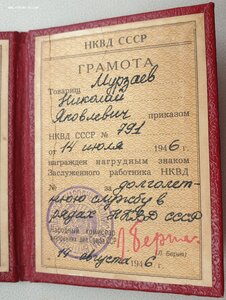 НКВД СССР
ГРАМОТА
Товарищ Мурзаев
Николай
Яковлевич приказом
НКВД СССР № 791
от 14 июля 1946 г.
награжден нагрудным знаком
Заслуженного работника НКВД
№ за долголет-
нюю службу в
рядах НКВД СССР
Народный комиссар
внутренних дел Союза ССР
(Л. Берия)
14 августа 1946 г.